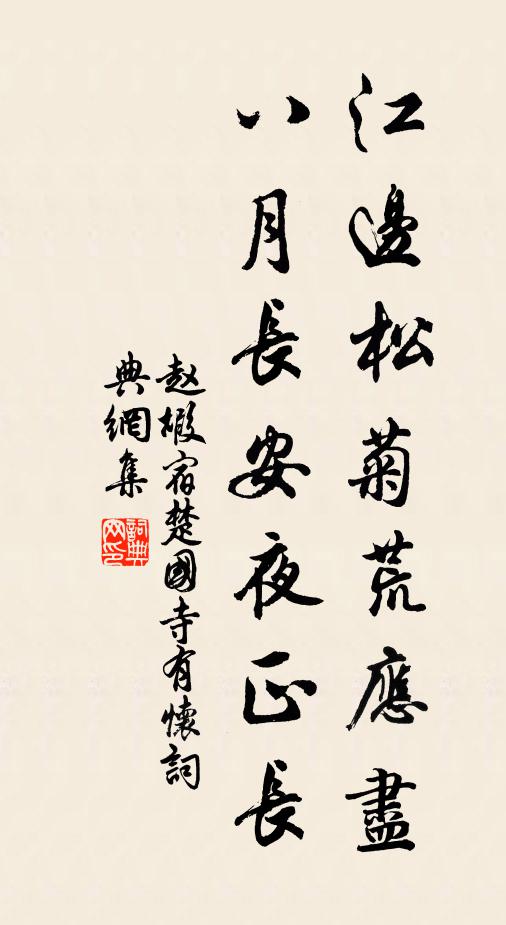 江邊松菊荒應盡
八月長安夜正長
赵椴宿楚國寺有懷詞
典網集
詞典
网印